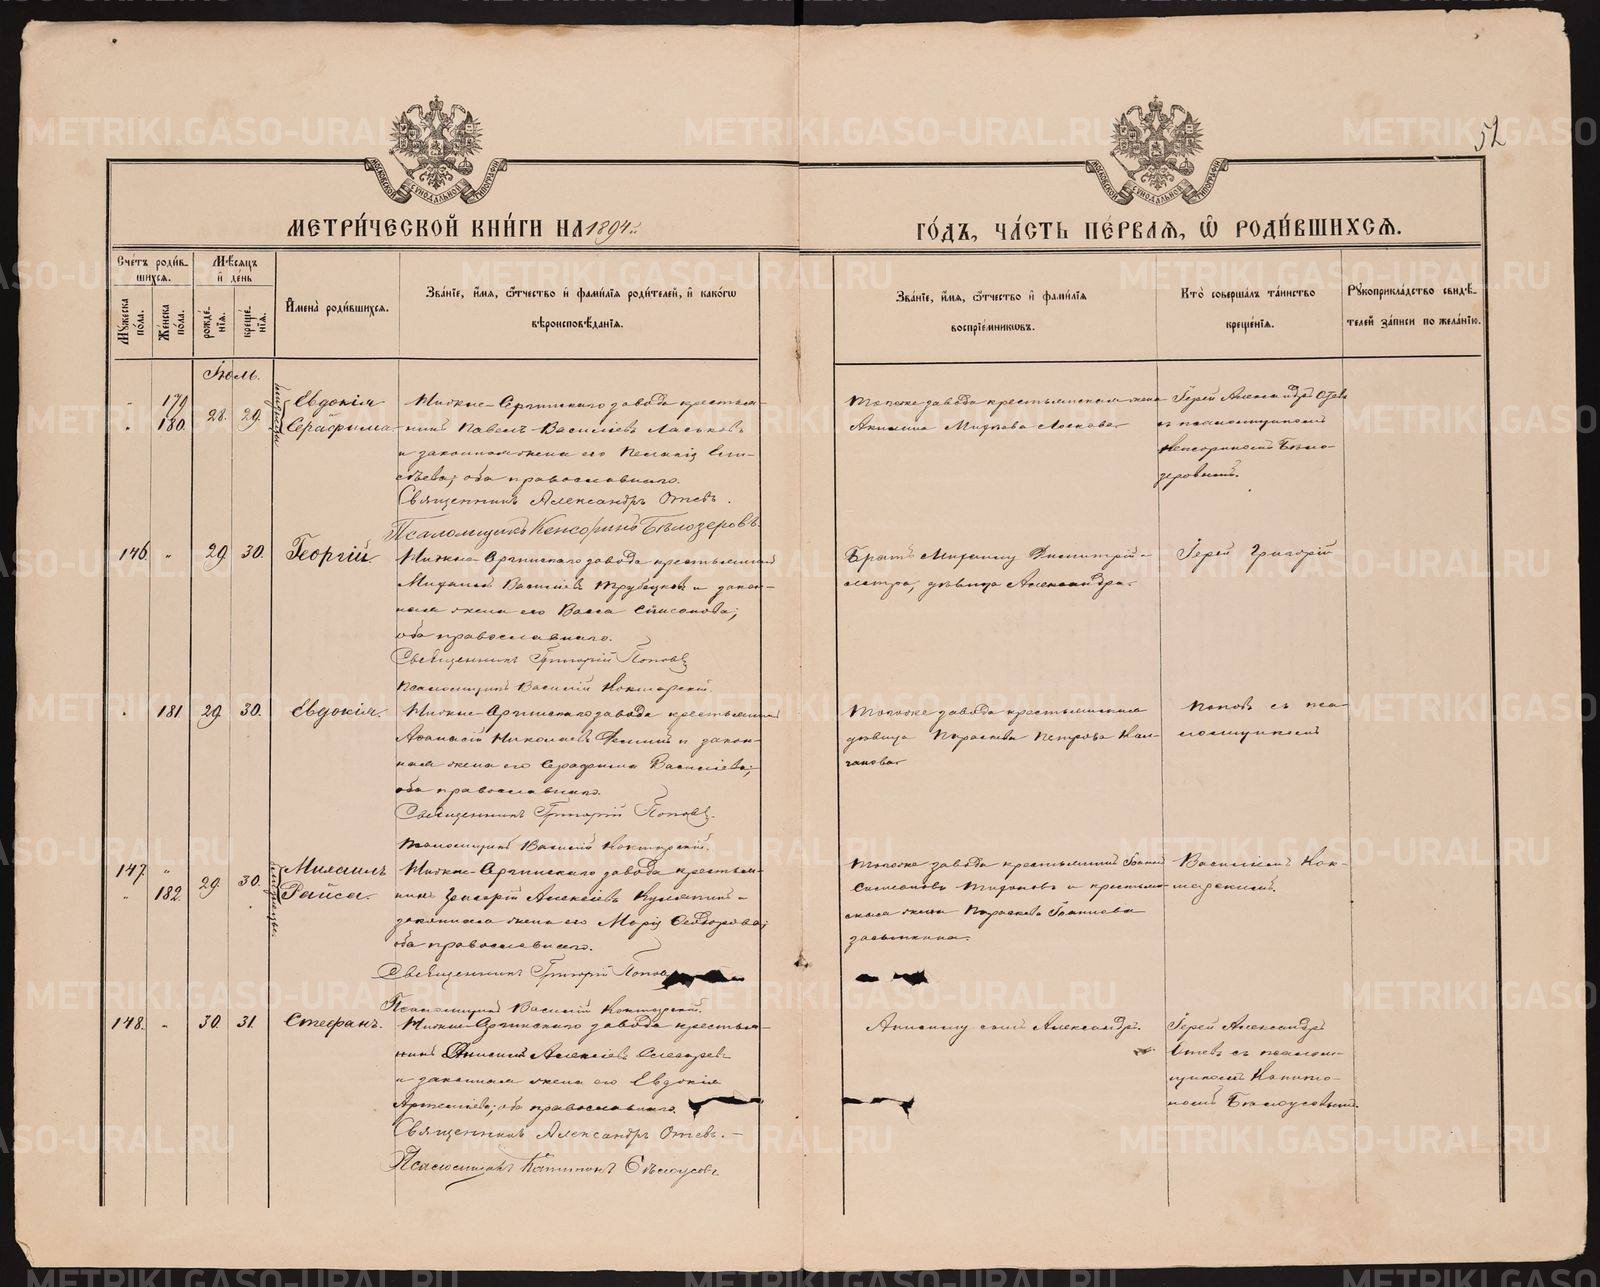 52
МЕТРИ́ЧЕСКОЙ КНИ́ГИ НА 1894 ГО́ДЪ, ЧА́СТЬ ПЕ́РВАЯ, Ѡ РОДИ́ВШИХСЯ.
МОСКОВСКОЙ СѴНОДАЛЬНОЙ ТИПОГРАФІИ
МОСКОВСКОЙ СѴНОДАЛЬНОЙ ТИПОГРАФІИ
Сче́тъ роди́в-
шихся.
Му́жеска по́ла.
Же́нска по́ла.
Мѣ́сяцъ
и де́нь
рожде́-
нія.
креще́-
нія.
Имена̀ роди́вшихся.
Зва́ніе, и́мя, ѻ́тчество и фами́лія роди́телей, и како́гѡ
вѣроисповѣ́данія.
Зва́ніе, и́мя, ѻ́тчество и фами́лія
воспріе́мникѡвъ.
Кто̀ соверша́лъ та́инство
креще́нія.
Рꙋкоприкла́дство свидѣ́-
телей за́писи по жела́нію.
Іюль.
179
180.
28. 29.
близнецы
Евдокія
Серафима
Нижне-Сергинскаго завода крестья-
нинъ Павелъ Василіевъ Ласьковъ
и законная жена его Пелагія Ели-
сѣева; оба православнаго.
Священникъ Александръ Отевъ.
Псаломщикъ Кенсоринъ Бѣлозеровъ.
Тогоже завода крестьянская жена
Акилина
Іерей Александръ Отевъ
съ псаломщикомъ
Кенсориномъ Бѣло-
зеровымъ.
146 " 29 30. Георгій.
Нижне-Сергинскаго завода крестьянинъ
Михаилъ Василіевъ Трубецковъ и закон-
ная жена его Васса
оба православнаго.
Священникъ Григорій Поповъ
Псаломщикъ Василій
Братъ Михаилу Димитрій и
сестра, дѣвица Александра.
Іерей Григорій
" 181 29 30. Евдокія.
Нижне-Сергинскаго завода крестьянинъ
Аѳанасій Николаевъ и закон-
ная жена его Серафима Василіева;
оба православнаго.
Священникъ Григорій Поповъ.
Псаломщикъ Василій
Тогоже завода крестьянская
дѣвица Параскева Петрова Кол-
чанова
Поповъ съ пса-
ломщикомъ
147. "
" 182. 29 30.
близнецы.
Михаилъ
Раиса.
Нижне-Сергинскаго завода крестья-
нинъ Григорій Алексіевъ и
законная жена его Марія Ѳеодорова;
оба православнаго.
Священникъ Григорій Поповъ
Псаломщикъ Василій
Тогоже завода крестьянинъ Іоаннъ
и крестьян-
ская жена Параскева Іоаннова
Василіемъ Кок-
шарскимъ.
148. " 30. 31. Стефанъ.
Нижне-Сергинскаго завода крестья-
нинъ Анисимъ Алексіевъ
и законная жена его Евдокія
оба православнаго.
Священникъ Александръ Отевъ.
Псаломщикъ Капитонъ Бѣлоусовъ
Анисиму сынъ Александръ.
Іерей Александръ
Отевъ съ псалом-
щикомъ Капито-
номъ Бѣлоусовымъ.
METRIKI.GASO-URAL.RU